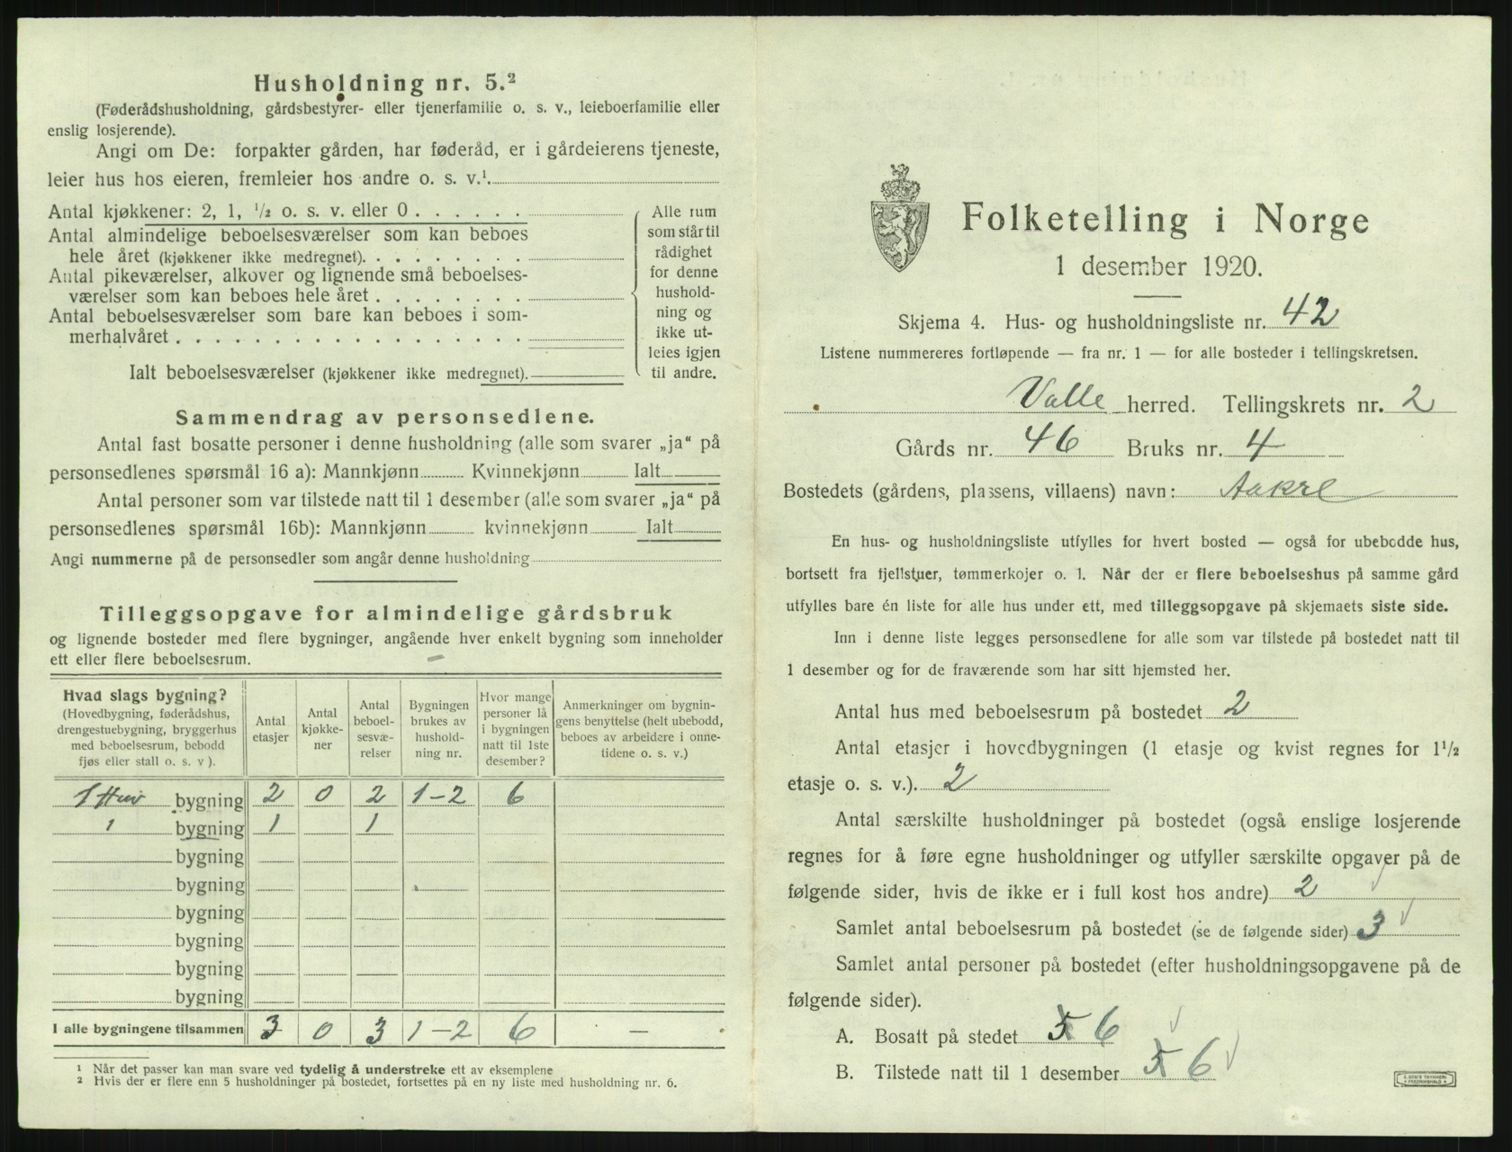 Husholdning nr. 5.²
(Føderådshusholdning, gårdsbestyrer- eller tjenerfamilie o. s. v., leieboerfamilie eller
enslig losjerende).
Angi om De: forpakter gården, har føderåd, er i gårdeierens tjeneste,
leier hus hos eieren, fremleier hos andre o. s. v.¹
Antal kjøkkener: 2, 1, ¹/₂ o. s. v. eller 0
Antal almindelige beboelsesværelser som kan beboes
hele året (kjøkkener ikke medregnet).
Antal pikeværelser, alkover og lignende små beboelses-
værelser som kan beboes hele året
Antal beboelsesværelser som bare kan beboes i som-
merhalvåret
Ialt beboelsesværelser (kjøkkener ikke medregnet).
Alle rum
som står til
rådighet
for denne
hushold-
ning og
ikke ut-
leies igjen
til andre.
Sammendrag av personsedlene.
Antal fast bosatte personer i denne husholdning (alle som svarer „ja“ på
personsedlenes spørsmål 16 a): Mannkjønn Kvinnekjønn Ialt
Antal personer som var tilstede natt til 1 desember (alle som svarer „ja“ på
personsedlenes spørsmål 16b): Mannkjønn kvinnekjønn Ialt
Angi nummerne på de personsedler som angår denne husholdning
Tilleggsopgave for almindelige gårdsbruk
og lignende bosteder med flere bygninger, angående hver enkelt bygning som inneholder
ett eller flere beboelsesrum.
Hvad slags bygning?
(Hovedbygning, føderådshus,
drengestuebygning, bryggerhus
med beboelsesrum, bebodd
fjøs eller stall o. s. v ).
Antal
etasjer
Antal
kjøkke-
ner
Antal
beboel-
sesvæ-
relser
Bygningen
brukes av
hushold-
ning nr.
Hvor mange
personer lå
i bygningen
natt til 1ste
desember?
Anmerkninger om bygnin-
gens benyttelse (helt ubebodd,
beboes av arbeidere i onne-
tidene o. s. v.)
bygning 2 0 2 1-2 6
1 bygning 1 1
bygning
bygning
bygning
bygning
bygning
bygning
I alle bygningene tilsammen 3 0 3 1-2 6 —
¹ Når det passer kan man svare ved tydelig å understreke ett av eksemplene
² Hvis der er flere enn 5 husholdninger på bostedet, fortsettes på en ny liste med husholdning nr. 6.
Folketelling i Norge
1 desember 1920.
Skjema 4. Hus- og husholdningsliste nr. 42
Listene nummereres fortløpende — fra nr. 1 — for alle bosteder i tellingskretsen.
Valle herred. Tellingskrets nr. 2
Gårds nr. 46 Bruks nr. 4
Bostedets (gårdens, plassens, villaens) navn: Aakre
En hus- og husholdningsliste utfylles for hvert bosted — også for ubebodde hus,
bortsett fra fjellstuer, tømmerkojer o. l. Når der er flere beboelseshus på samme gård
utfylles bare én liste for alle hus under ett, med tilleggsopgave på skjemaets siste side.
Inn i denne liste legges personsedlene for alle som var tilstede på bostedet natt til
1 desember og for de fraværende som har sitt hjemsted her.
Antal hus med beboelsesrum på bostedet 2
Antal etasjer i hovedbygningen (1 etasje og kvist regnes for 1¹/₂
etasje o. s. v.). 2
Antal særskilte husholdninger på bostedet (også enslige losjerende
regnes for å føre egne husholdninger og utfyller særskilte opgaver på de
følgende sider, hvis de ikke er i full kost hos andre) 2
Samlet antal beboelsesrum på bostedet (se de følgende sider) 3
Samlet antal personer på bostedet (efter husholdningsopgavene på de
følgende sider).
A. Bosatt på stedet 5 6
B. Tilstede natt til 1 desember 5 6